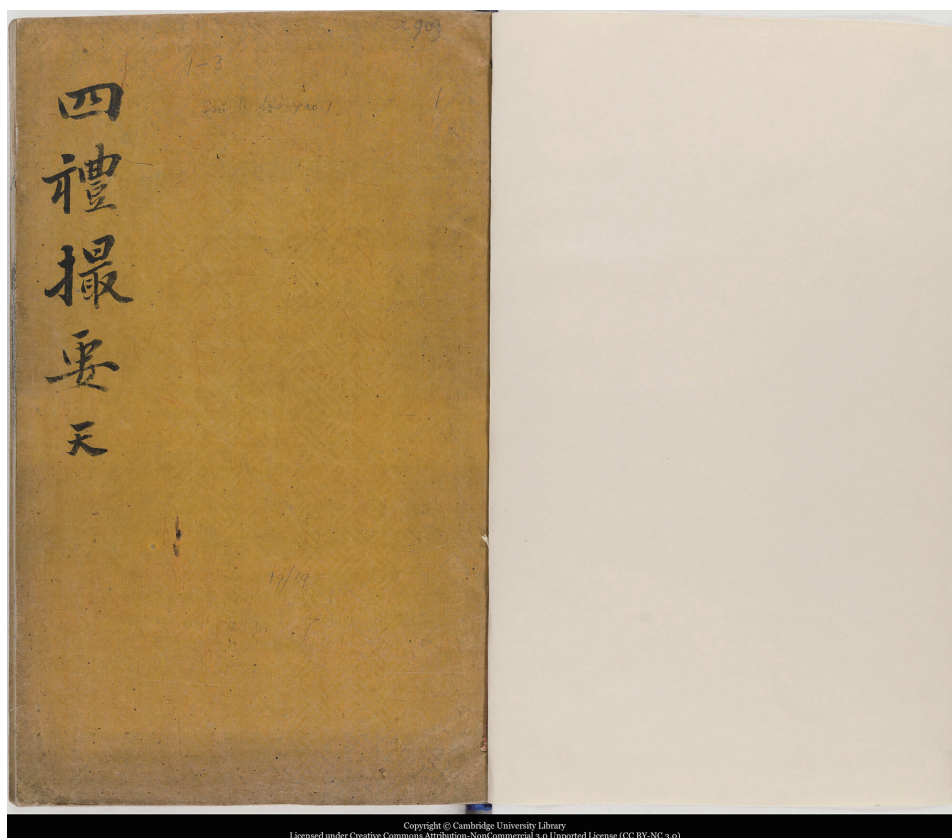 四禮撮要 天
1-3
1
19/19
Copyright © Cambridge University Library
Licensed under Creative Commons Attribution-NonCommercial 3.0 Unported License (CC BY-NC 3.0)